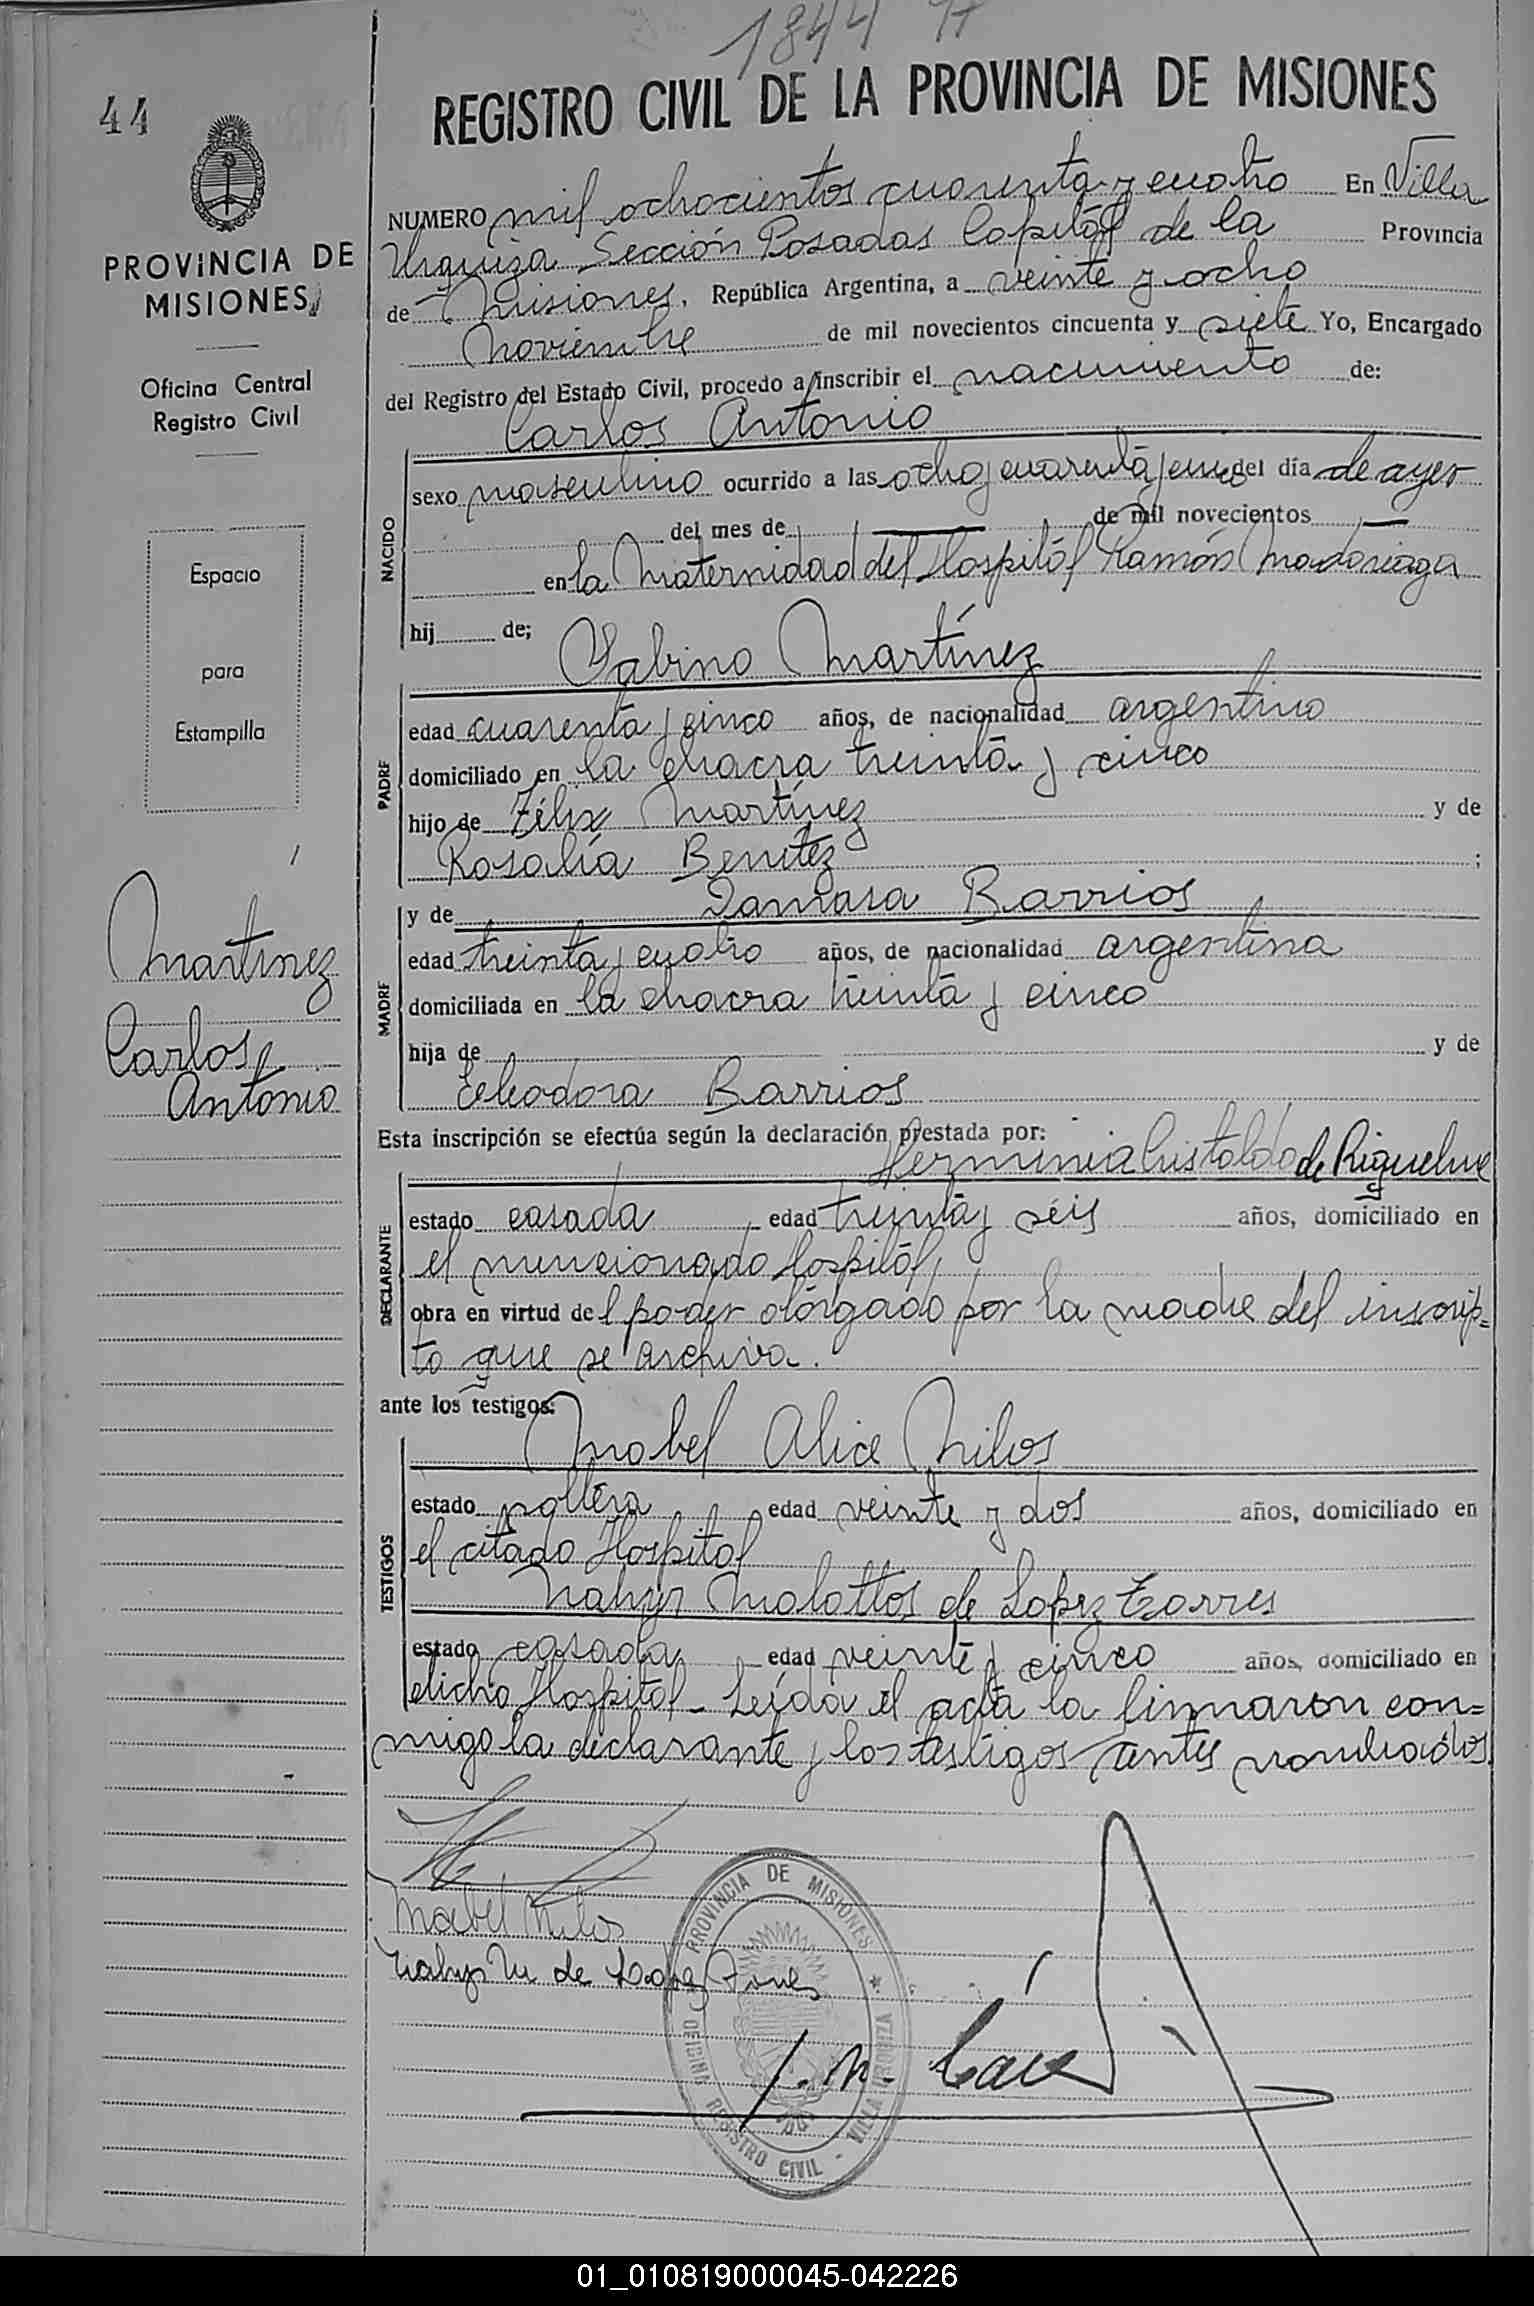 1844 H
44
REGISTRO CIVIL DE LA PROVINCIA DE MISIONES
PROVINCIA DE
MISIONES
Oficina Central
Registro Civil
Espacio
para
Estampilla
Martínez
Carlos
Antonio
NUMERO mil ochocientos cuarenta y cuatro En Villa
Urquiza Sección Posadas Capital de la Provincia
de Misiones, República Argentina, a veinte y ocho
Noviembre de mil novecientos cincuenta y siete Yo, Encargado
del Registro del Estado Civil, procedo a inscribir el nacimiento de:
Carlos Antonio
NACIDO
sexo masculino ocurrido a las ocho y cuarenta y cinco del día de ayer
del mes de — de mil novecientos —
en la Maternidad del Hospital Ramón Madariaga
hij de;
Sabino Martínez
PADRE
edad cuarenta y cinco años, de nacionalidad argentino
domiciliado en la chacra treinta y cinco
hijo de Félix Martínez y de
Rosalía Benítez ;
y de Damasa Barrios
MADRE
edad treinta y cuatro años, de nacionalidad argentina
domiciliada en la chacra treinta y cinco
hija de y de
Eleodora Barrios
Esta inscripción se efectúa según la declaración prestada por:
Herminia Cristaldo de Riquelme
DECLARANTE
estado casada edad treinta y séis años, domiciliado en
el mencionado hospital,
obra en virtud del poder otorgado por la madre del inscrip=
to que se archiva.
ante los testigos:
Mabel Alice Milos
TESTIGOS
estado soltera edad veinte y dos años, domiciliado en
el citado Hospital
Nahyr Malattos de Lopez Torres
estado casada edad veinte y cinco años, domiciliado en
dicho Hospital- Leída el acta la firmaron con=
migo la declarante y los testigos antes nombrados.
Mabel Milos
Nahyr M de Lopez Torres
PROVINCIA DE MISIONES
OFICINA REGISTRO CIVIL - VILLA URQUIZA
01_010819000045-042226